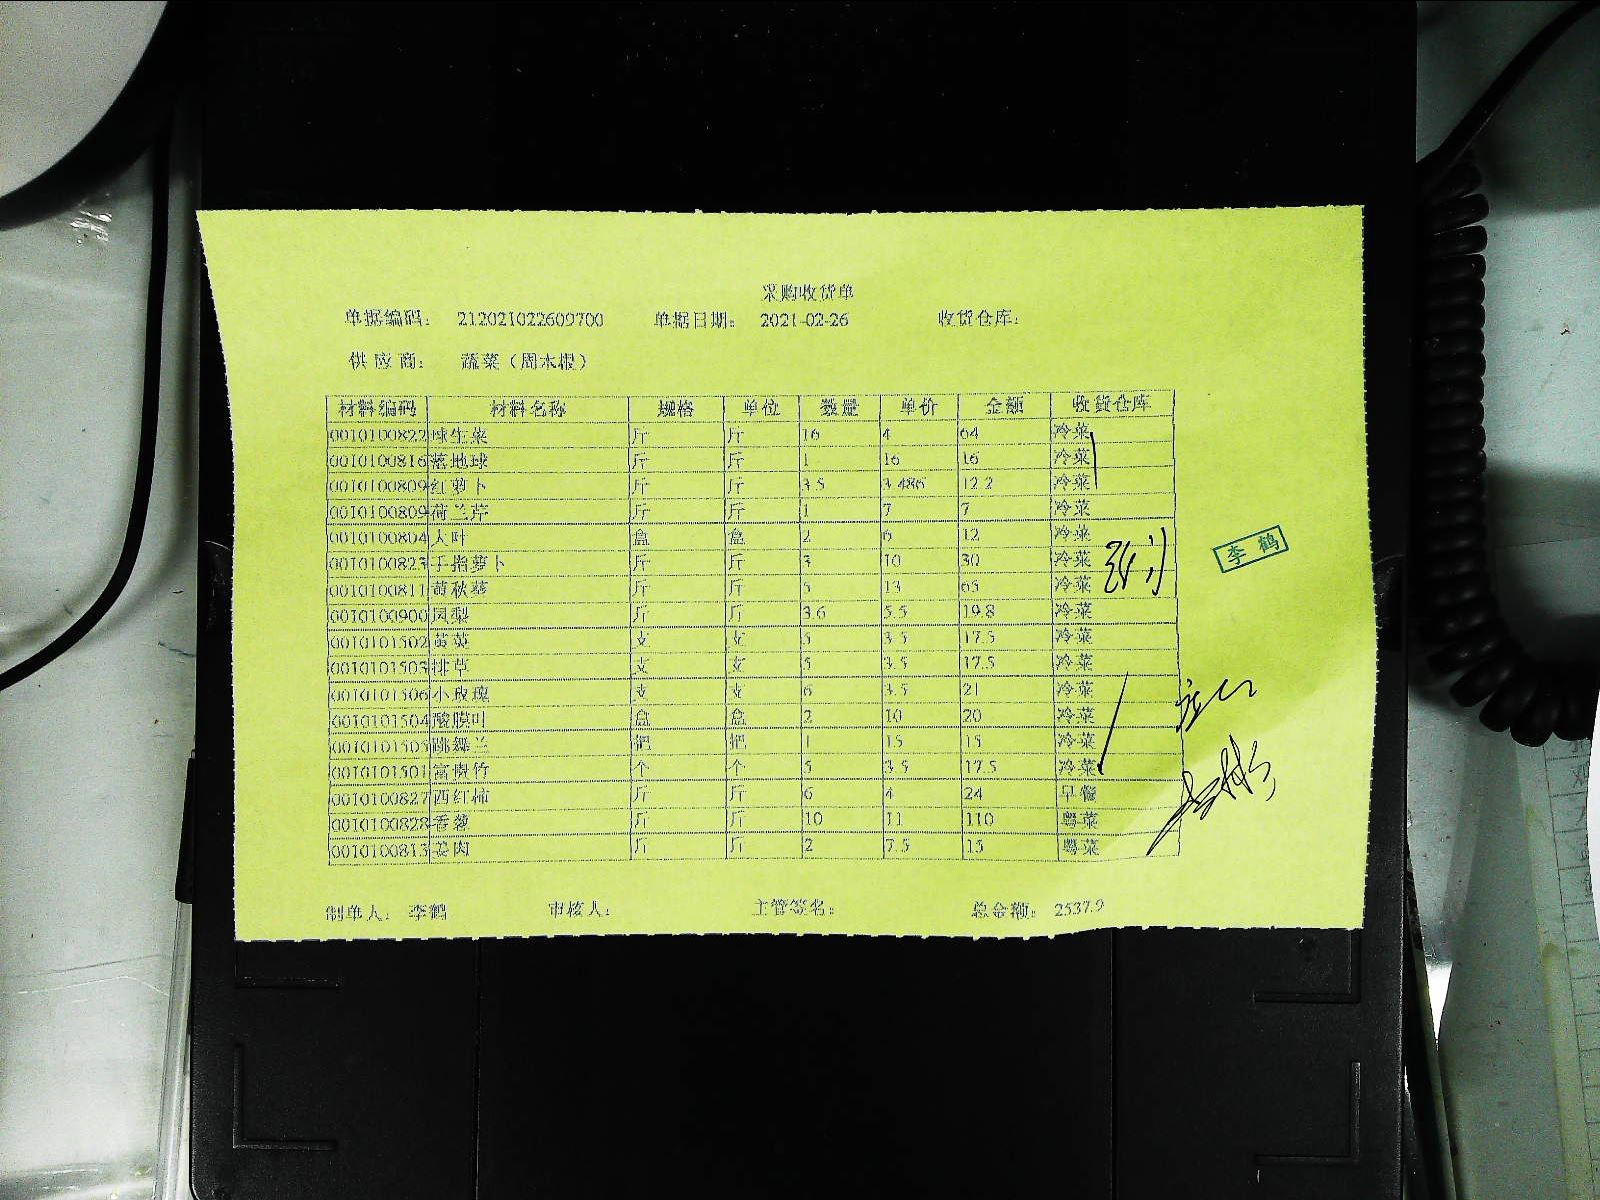 采购收货单
单据编码： 212021022609700 单据日期： 2021-02-26 收货仓库：
供应商： 蔬菜（周木根）
材料编码 材料名称 规格 单位 数量 单价 金额 收货仓库
0010100822 球生菜 斤 斤 16 4 64 冷菜
0010100816 落地球 斤 斤 1 16 16 冷菜
0010100809 红萝卜 斤 斤 3.5 3.486 12.2 冷菜
0010100809 荷兰芹 斤 斤 1 7 7 冷菜
0010100804 大叶 盒 盒 2 6 12 冷菜
0010100823 手指萝卜 斤 斤 3 10 30 冷菜
0010100811 黄秋葵 斤 斤 5 13 65 冷菜
0010100900 凤梨 斤 斤 3.6 5.5 19.8 冷菜
0010101502 黄英 支 支 5 3.5 17.5 冷菜
0010101503 排草 支 支 5 3.5 17.5 冷菜
0010101506 小玫瑰 支 支 6 3.5 21 冷菜
0010101504 酸膜叶 盒 盒 2 10 20 冷菜
0010101505 跳舞兰 把 把 1 15 15 冷菜
0010101501 富贵竹 个 个 5 3.5 17.5 冷菜
0010100827 西红柿 斤 斤 6 4 24 早餐
0010100828 香蓼 斤 斤 10 11 110 粤菜
0010100813 姜肉 斤 斤 2 7.5 15 粤菜
李鹤
制单人： 李鹤 审核人： 主管签名： 总金额： 2537.9